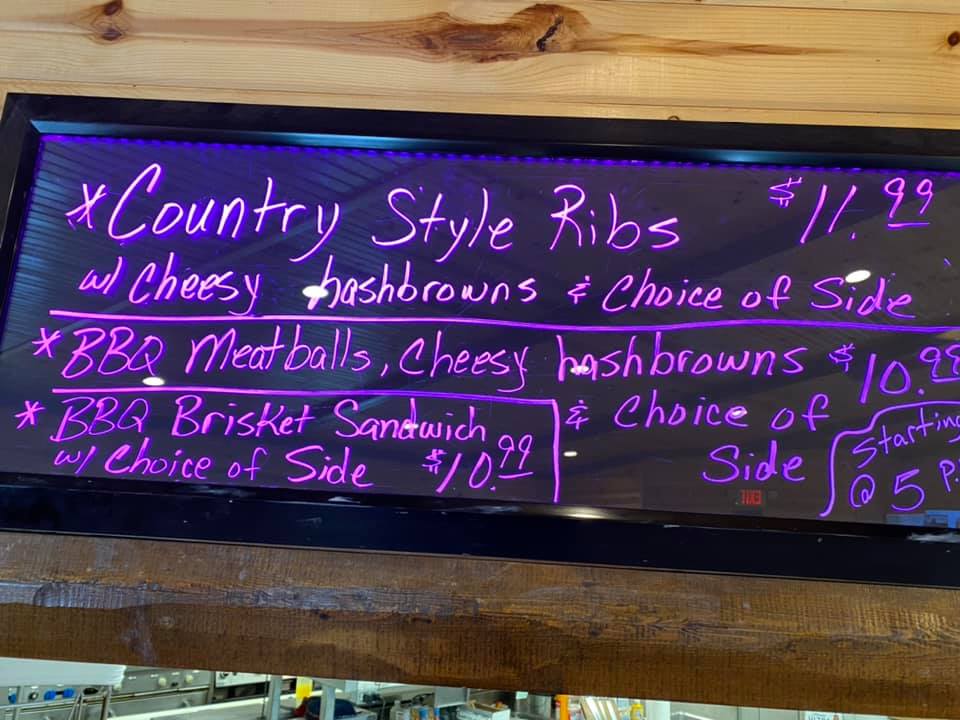 *Country Style Ribs $11.99
w/ Cheesy hashbrowns & Choice of Side
*BBQ Meatballs, Cheesy hashbrowns $10.99
& Choice of
Side
*BBQ Brisket Sandwich
w/ Choice of Side $10.99
Starting
@ 5 P.